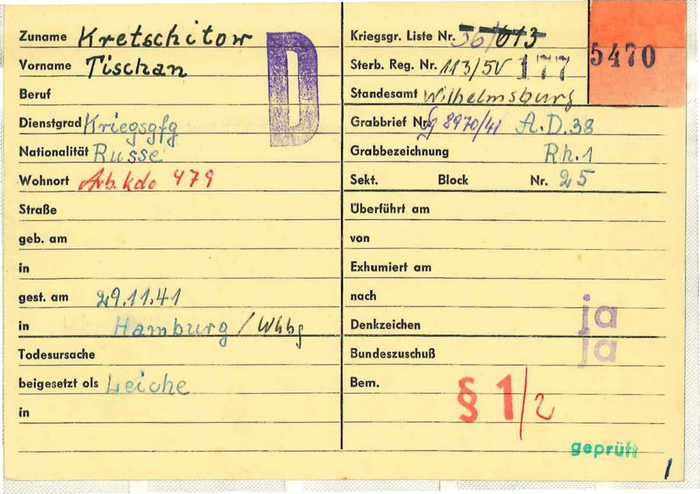 Zuname Kretschitow
Vorname Tischan
Beruf
Dienstgrad Kriegsgfg
Nationalität Russe
Wohnort Arb.kdo 479
Straße
geb. am
in
gest. am 29.11.41
in Hamburg / Whbg
Todesursache
beigesetzt als Leiche
in
D
Kriegsgr. Liste Nr.
Sterb. Reg. Nr. 113/50 177
Standesamt Wilhelmsburg
Grabbrief Nr. 8970/41 A.D.38
Grabbezeichnung Rh.1
Sekt. Block Nr. 25
Überführt am
von
Exhumiert am
nach
Denkzeichen ja
Bundeszuschuß ja
Bem. § 1/2
geprüft
1
5470